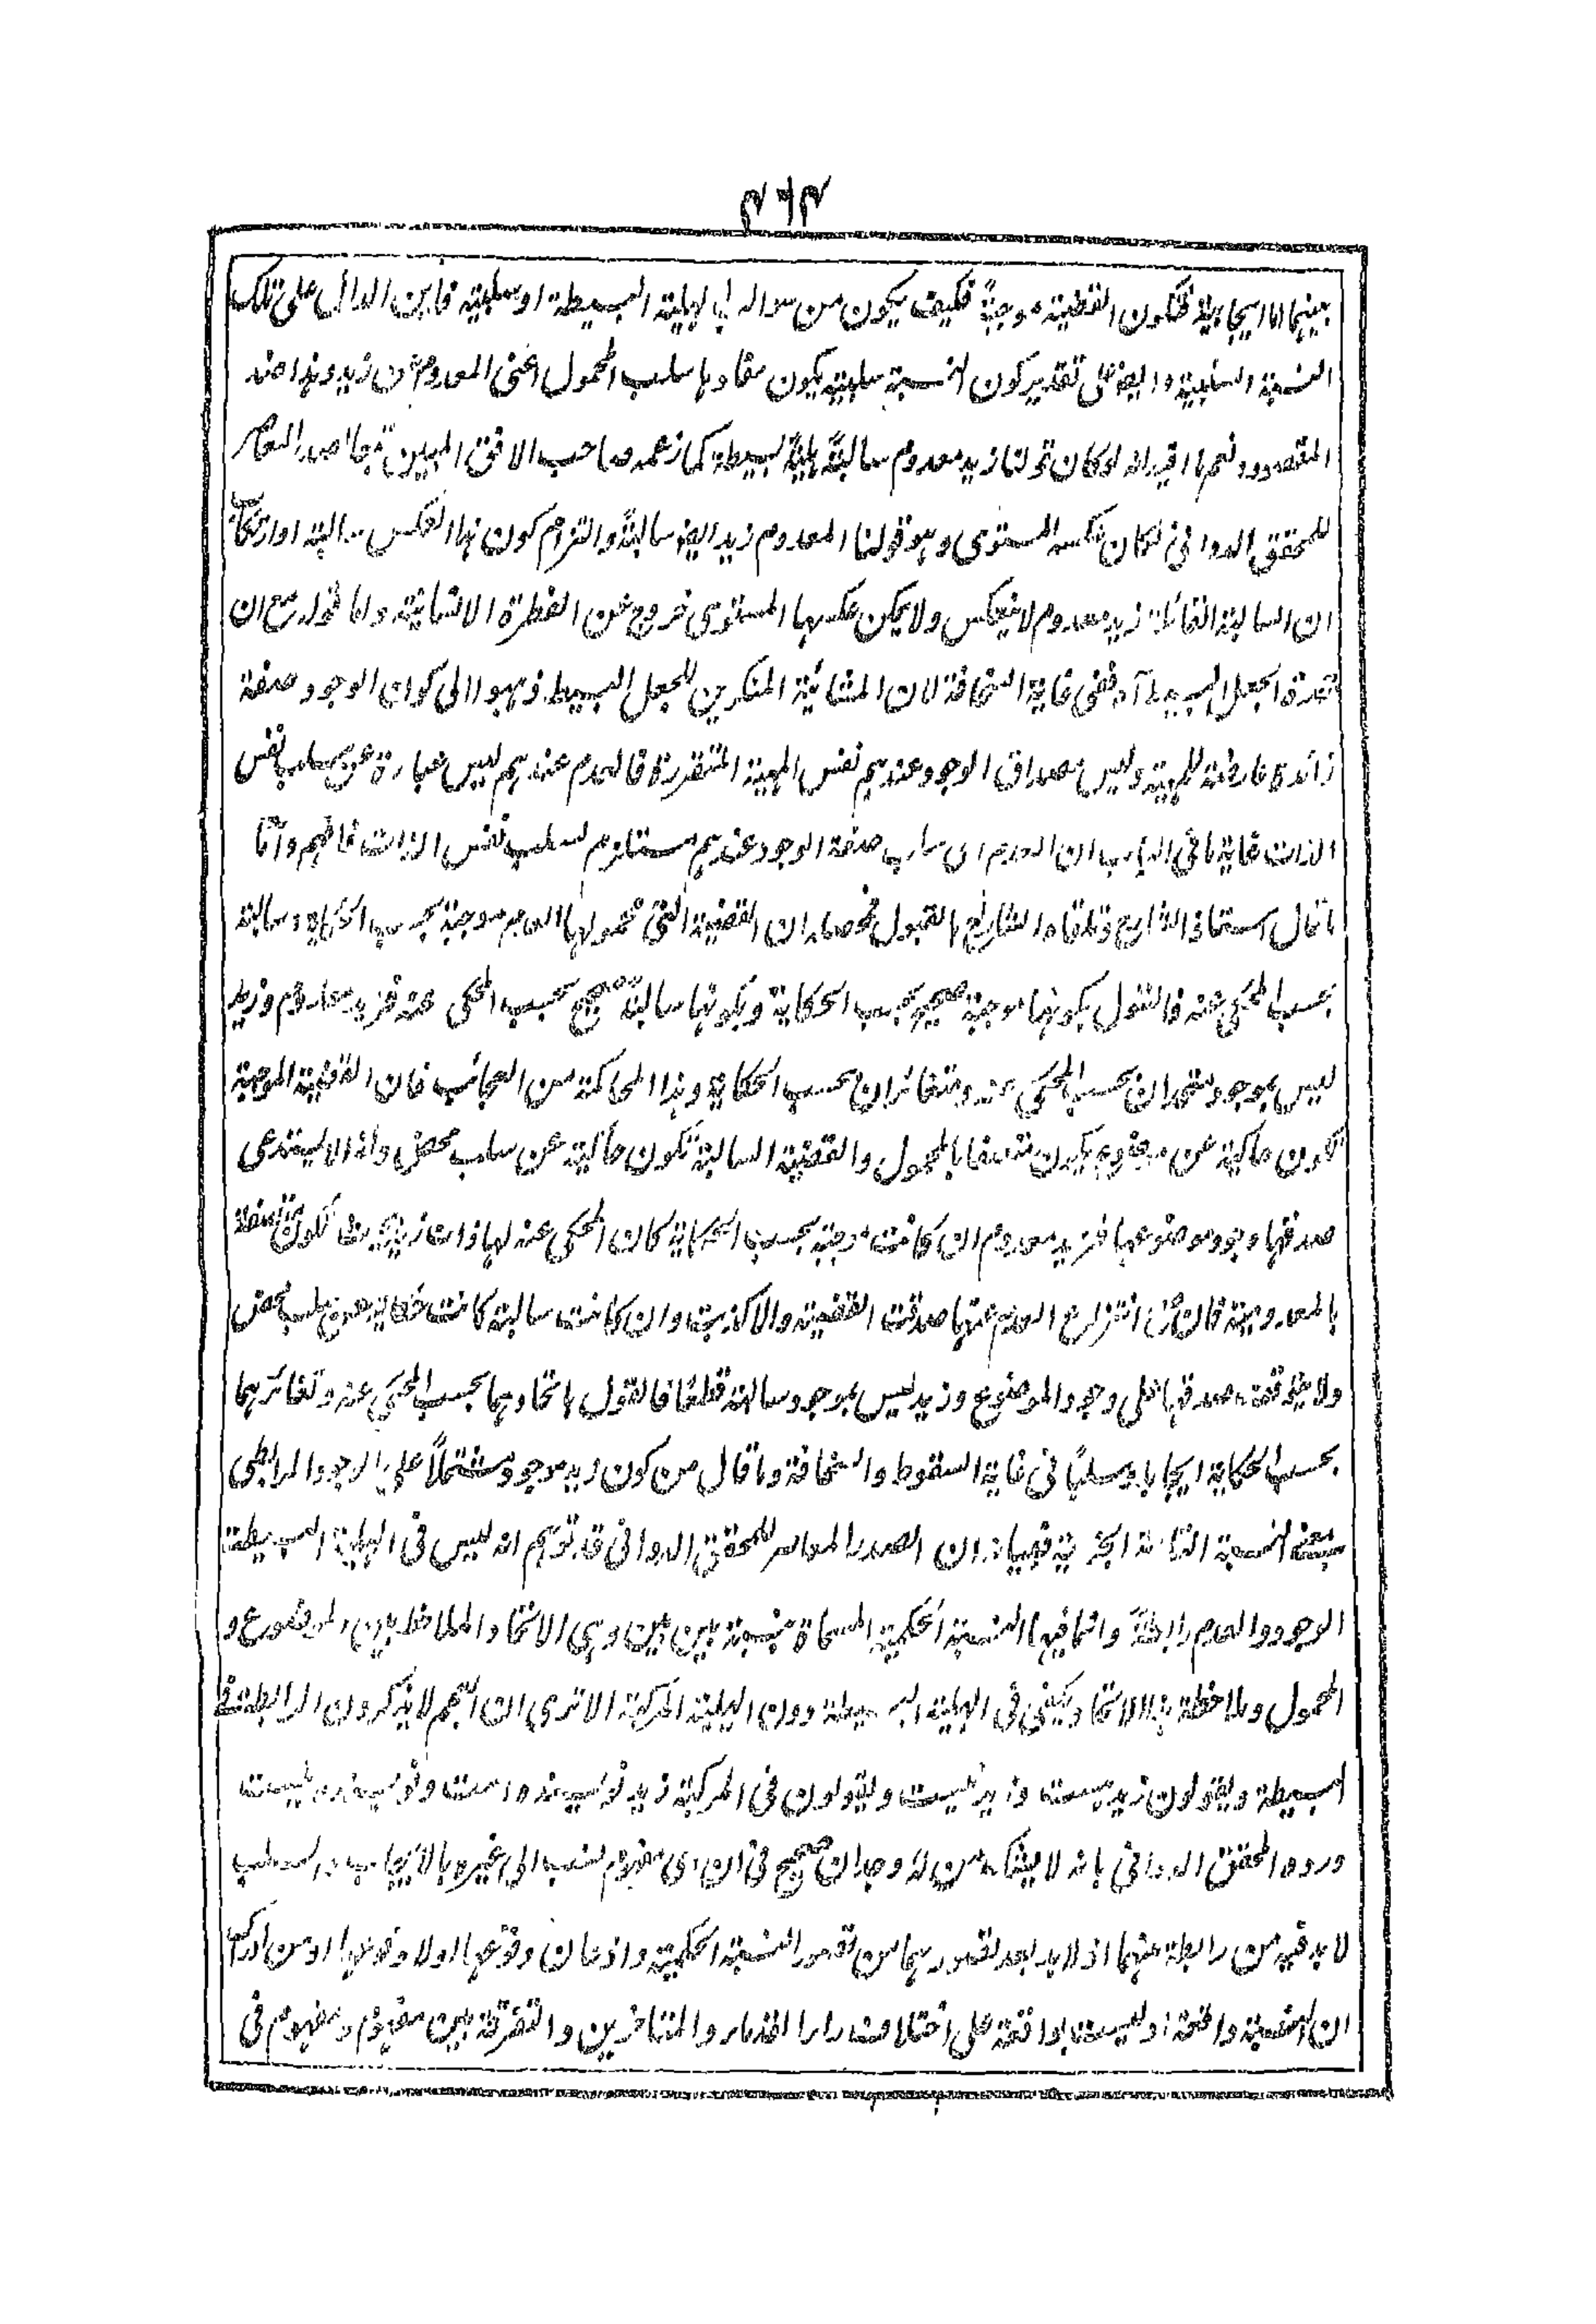 بينهما اما ايجابية فتكون القضية موجبة فكيف يكون من سوالب الهلية البسيطة او سلبية فاين الدال على تلك
النسبة السلبية وايضا على تقدير كون النسبة سلبية يكون مفادها سلب المحمول اعنى المعدوم عن زيد وهذا ضد
المقصود ونعم ما قيل انه لو كان قولنا زيد معدوم سالبة هلية بسيطة كما زعمه صاحب الافق المبين تبعا لصدر المعاصر
للمحقق الدوانى لكان عكسه المستوى وهو قولنا المعدوم زيد ايضا سالبة والتزام كون هذا العكس سالبة او ارتكاب
ان السالبة القائلة زيد معدوم لا ينعكس ولا يمكن عكسها المستوى خروج عن الفطرة الانسانية واما قوله مع ان
الجعل البسيط آه ففى غاية السخافة لان المشائية المنكرين للجعل البسيط ذهبوا الى كون الوجود صفة
زائدة عارضة للمهية وليس مصداق الوجود عندهم نفس المهية المتقررة فالعدم عندهم ليس عبارة عن سلب نفس
الذات غاية ما فى الباب ان العدم اى سلب صفة الوجود عندهم مستلزم لسلب نفس الذات فافهم واما
ما قال استاذ الشارح وتلقاه الشارح بالقبول فمحصله ان القضية التى محمولها العدم موجبة بحسب الحكاية وسالبة
بحسب المحكى عنه فالقول بكونها موجبة صحيح بحسب الحكاية وبكونها سالبة صحيح بحسب المحكى عنه فزيد معدوم وزيد
ليس بموجود متحدان بحسب المحكى عنه ومتغائران بحسب الحكاية وهذا المحاكمة من العجائب فان القضية الموجبة
تكون حاكية عن يكون متصفا بالمحمول والقضية السالبة تكون حاكية عن سلب محض ولذا لا يستدعى
صدقها وجود موضوعها فزيد معدوم ان كانت موجبة بحسب الحكاية كان المحكى عنه لها ذات زيد بحيث تكون متصفة
بالمعدومية فان انتزاع العدم عنها صدقت القضية والا كذبت وان كانت سالبة كانت حكاية عن سلب محض
ولا يتوقف صدقها على وجود الموضوع وزيد ليس بموجود سالبة قطعا فالقول باتحادهما بحسب المحكى عنه وتغائرهما
بحسب الحكاية ايجابا وسلبا فى غاية السقوط والسخافة وما قال من كون زيد موجود مشتملا على الوجود الرابطى
بمعنى النسبة التامة الخبرية فبيانه ان الصدر المعاصر للمحقق الدوانى قد توهم انه ليس فى الهلية البسيطة
الوجود والعدم رابطة وانما فيها النسبة الحكمية المسماة بنسبة بين بين وهى الاتحاد والملاحظ بين الموضوع و
المحمول وملاحظة هذا الاتحاد يكفى فى الهلية البسيطة دون الهلية المركبة الا ترى ان العجم لا يذكرون الرابطة فى
البسيطة ويقولون زيد هست وزيد نيست ويقولون فى المركبة زيد نويسنده است ونويسنده نيست
ورده المحقق الدوانى بانه لا يشك من له وجدان صحيح فى ان اى مفهوم نسب الى غيره بالايجاب والسلب
لا بد فيه من رابطة بينهما اذ لا بد بعد تصورهما من تصور النسبة الحكمية واذعان وقوعها اولا وقوعها او من ادراك
ان النسبة واقعة او ليست بواقعة على اختلاف راى القدماء والمتاخرين والتفرقة بين مفهوم ومفهوم فى